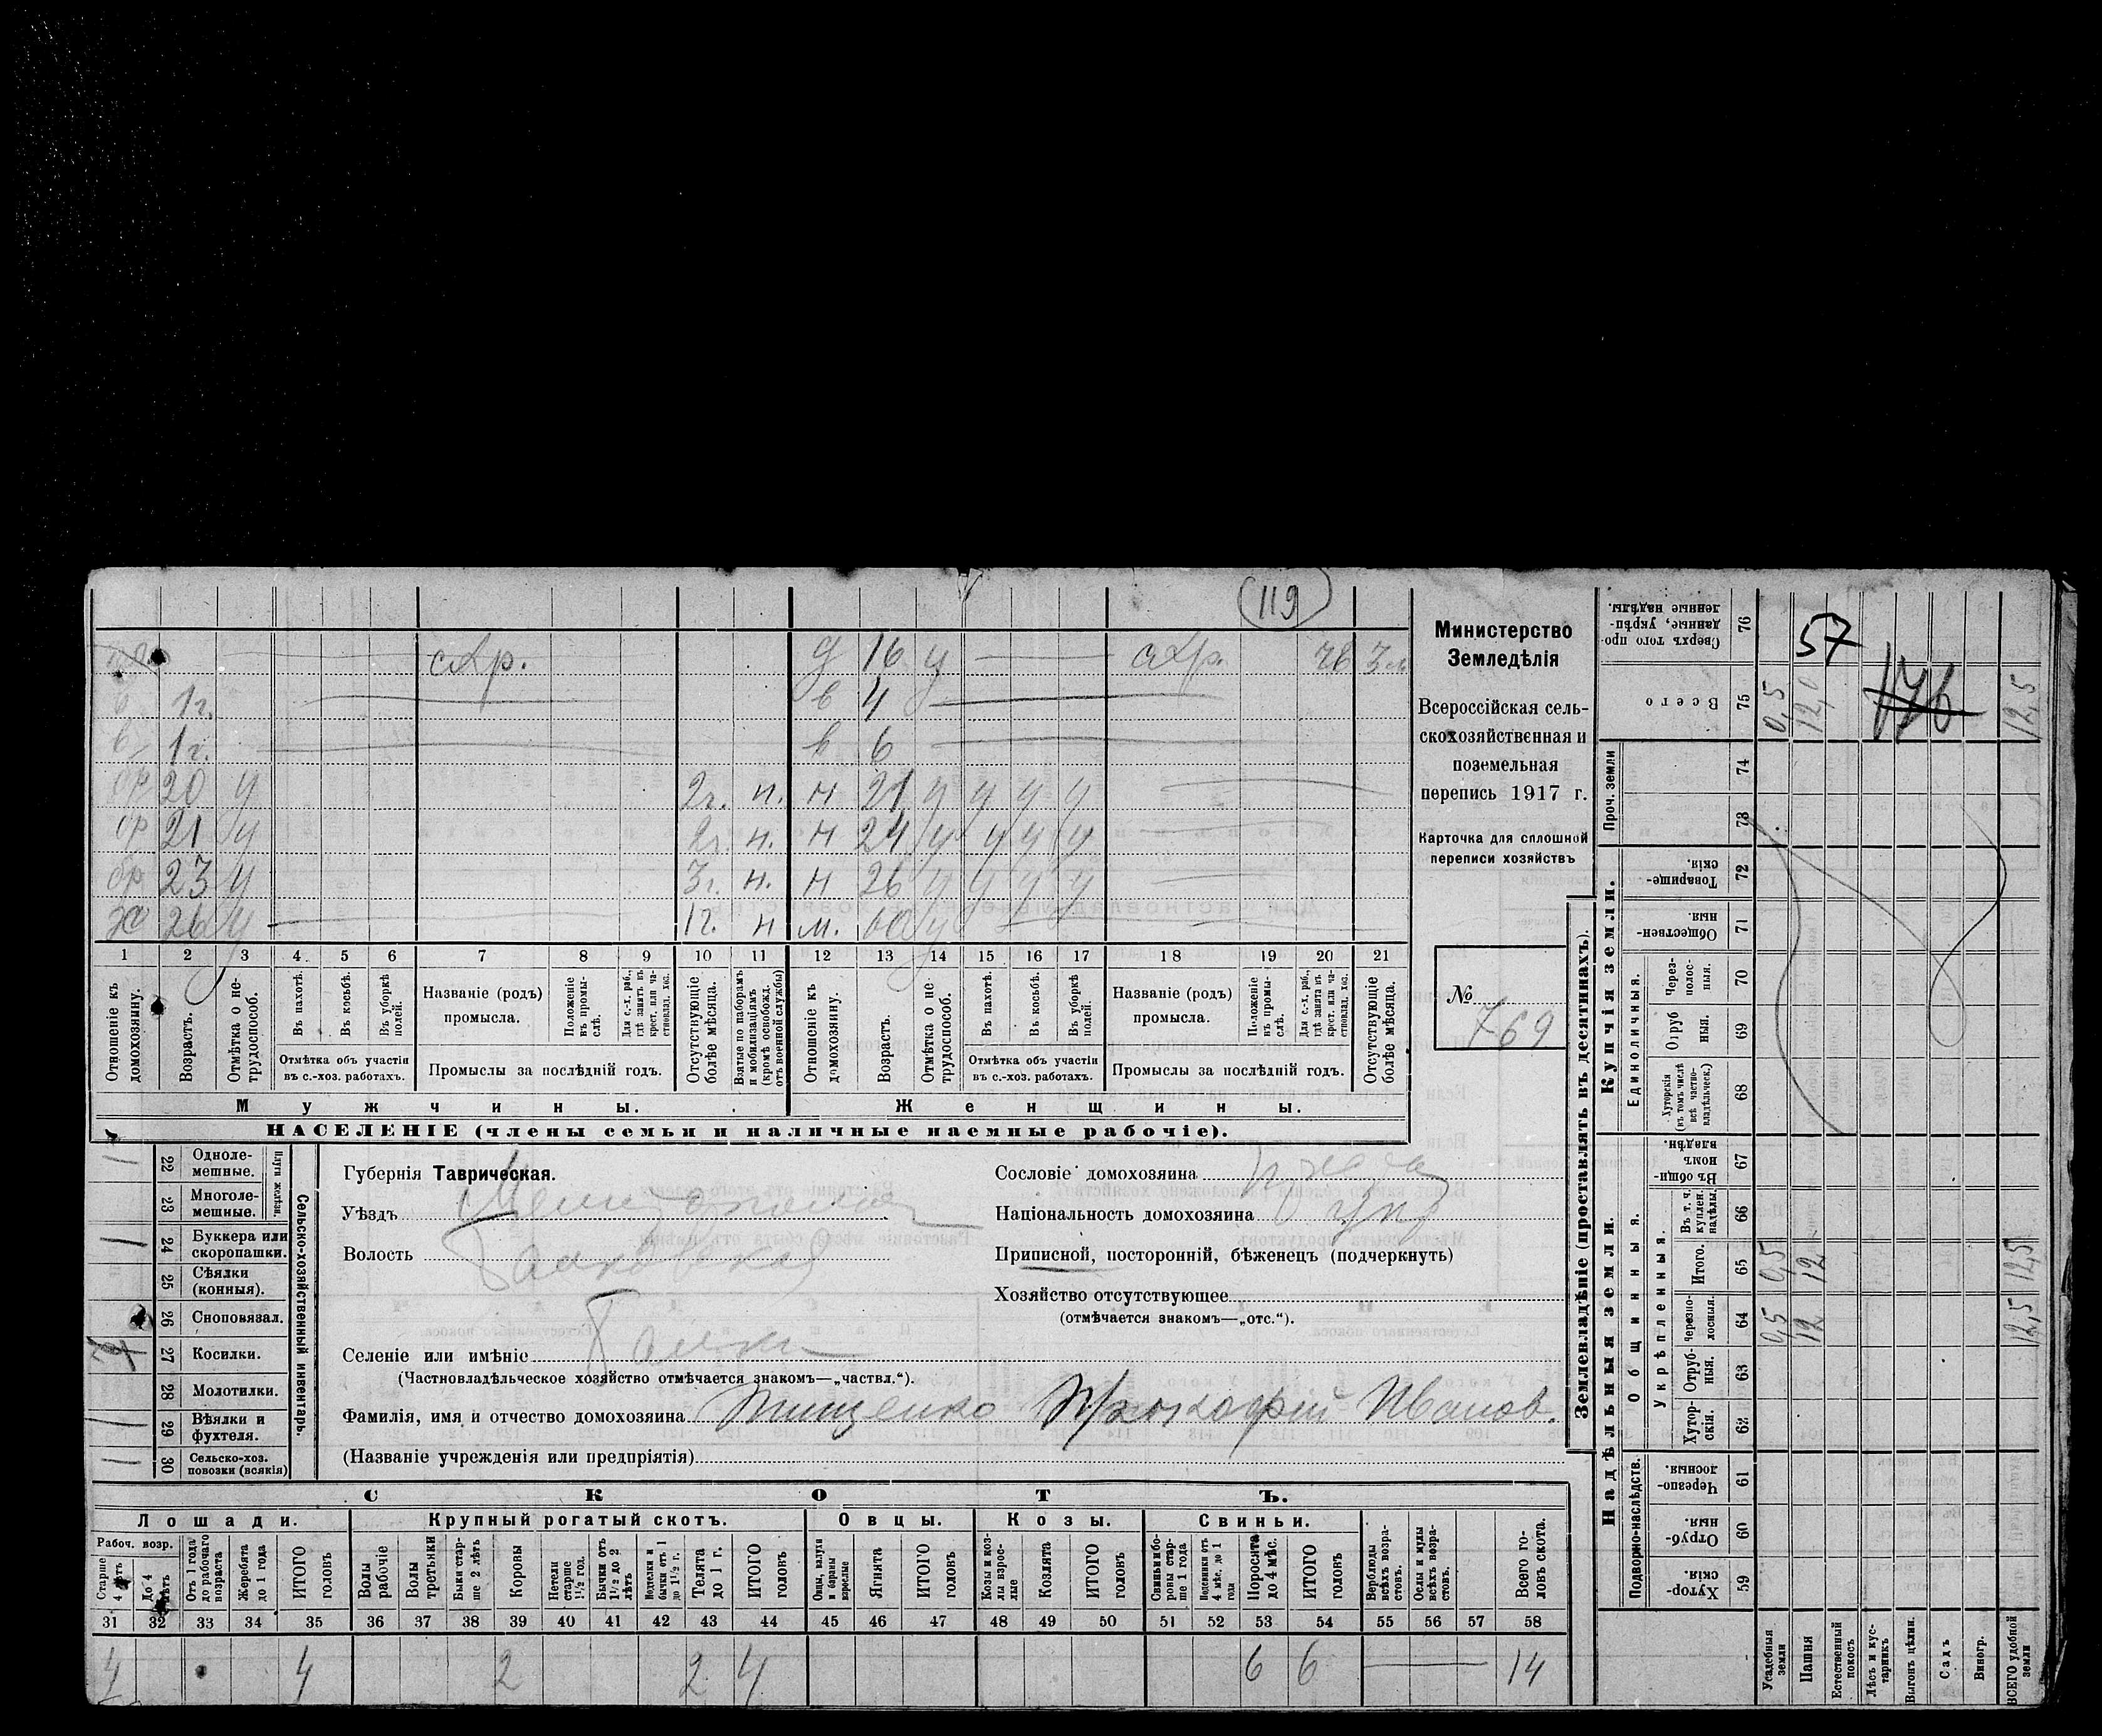 119
схр. д 16 у схр. чб 3 м
1 г. в 4
1 г. в 6
бр 20 у 2г. н. н 21 у у у у
бр 21 у 2г. н. н 24 у у у у
бр 23 у 3г. н. н 26 у у у у
хо 26 у 1г. н м. 60 у
1 2 3 4 5 6 7 8 9 10 11 12 13 14 15 16 17 18 19 20 21
Отношеніе къ домохозяину.
Возрастъ.
Отмѣтка о не-трудоспособ.
Въ пахотѣ.
Въ косьбѣ.
Въ уборкѣ полей.
Отмѣтка объ участіи
въ с.-хоз. работахъ.
Названіе (родъ)
промысла.
Положеніе въ промы-слѣ.
Для с.-х. раб., гдѣ занятъ въ крест. или ча-стновлад. хоз.
Промыслы за послѣдній годъ.
Отсутствующіе болѣе мѣсяца.
Взятые по наборамъ и мобилизаціямъ (кромѣ освобожд. отъ военной службы)
Отношеніе къ домохозяину.
Возрастъ.
Отмѣтка о не-трудоспособ.
Въ пахотѣ.
Въ косьбѣ.
Въ уборкѣ полей.
Отмѣтка объ участіи
въ с.-хоз. работахъ.
Названіе (родъ)
промысла.
Положеніе въ промы-слѣ.
Для с.-х. раб., гдѣ занятъ въ крест. или ча-стновлад. хоз.
Промыслы за послѣдній годъ.
Отсутствующіе болѣе мѣсяца.
Мужчины. Женщины.
НАСЕЛЕНІЕ (члены семьи и наличные наемные рабочіе).
Министерство
Земледѣлія
Всероссійская сель-
скохозяйственная и
поземельная
перепись 1917 г.
Карточка для сплошной
переписи хозяйствъ
№ 769
Сельско-хозяйственный инвентарь.
Плуги желѣзн.
22 Одноле-мешные. 1
23 Многоле-мешные.
24 Буккера или скоропашки. 1
25 Сѣялки (конныя).
26 Сноповязал.
27 Косилки.
28 Молотилки.
29 Вѣялки и фухтеля. 1
30 Сельско-хоз. повозки (всякія)
Губернія Таврическая.
Уѣздъ Мелитопольск
Волость Балковская
Селеніе или имѣніе Балки
(Частновладѣльческое хозяйство отмѣчается знакомъ—„частвл.“).
Фамилія, имя и отчество домохозяина Тищенко Прокофій Иванов.
(Названіе учрежденія или предпріятія)
Сословіе домохозяина
Національность домохозяина укр
Приписной, посторонній, бѣженецъ (подчеркнуть)
Хозяйство отсутствующее
(отмѣчается знакомъ—„отс.“).
СКОТЪ.
Лошади. Крупный рогатый скотъ. Овцы. Козы. Свиньи.
Рабоч. возр.
Старше 4 лѣтъ
До 4 лѣтъ
Отъ 1 года до рабочаго возраста
Жеребята до 1 года
ИТОГО головъ
Волы рабочіе
Волы третьяки
Быки стар-ше 2 лѣтъ
Коровы
Нетели старше 1½ год.
Бычки отъ 1½ до 2 лѣтъ
Подтелки и бычки отъ 1 до 1½ г.
Телята до 1 г.
ИТОГО головъ
Овцы, валухи и бараны взрослые
Ягнята
ИТОГО головъ
Козы и коз-лы взрос-лые
Козлята
ИТОГО головъ
Свиньи и бо-ровы стар-ше 1 года
Подсвинки отъ 4 мѣс. до 1 года
Поросята до 4 мѣс.
ИТОГО головъ
Верблюды всѣхъ возра-стовъ.
Ослы и мулы всѣхъ возра-стовъ.
Всего го-ловъ скота.
31 32 33 34 35 36 37 38 39 40 41 42 43 44 45 46 47 48 49 50 51 52 53 54 55 56 57 58
4 4 2 2 4 6 6 14
Землевладѣніе (проставлять въ десятинахъ).
Надѣльныя земли.
Купчія земли.
Проч. земли
Подворно-наслѣдств.
Общинныя.
Укрѣпленныя.
Единоличныя.
76 Сверхъ того про-данные, укрѣп-ленные надѣлы. 57
75 Всего 0,5 12,0 176 12,5
74
73
72 Товарище-скія.
71 Обществен-ныя
70 Через-полос-ныя.
69 Отруб ныя.
68 Хуторскія (въ томъ числѣ всѣ частно-владѣльческ.)
67 Въ общи-номъ владѣн.
66 Въ т. ч. куплен. надѣлы.
65 Итого. 0,5 12 12,5
64 Черезпо-лосныя. 0,5 12 12,5
63 Отруб-ныя.
62 Хутор-скія.
61 Черезпо-лосныя
60 Отруб-ныя.
59 Хутор-скія.
Усадебныя земли
Пашня
Естественный покосъ
Лѣсъ и кус-тарникъ
Выгонъ цѣлин.
Садъ
Виногр.
ВСЕГО удобной земли